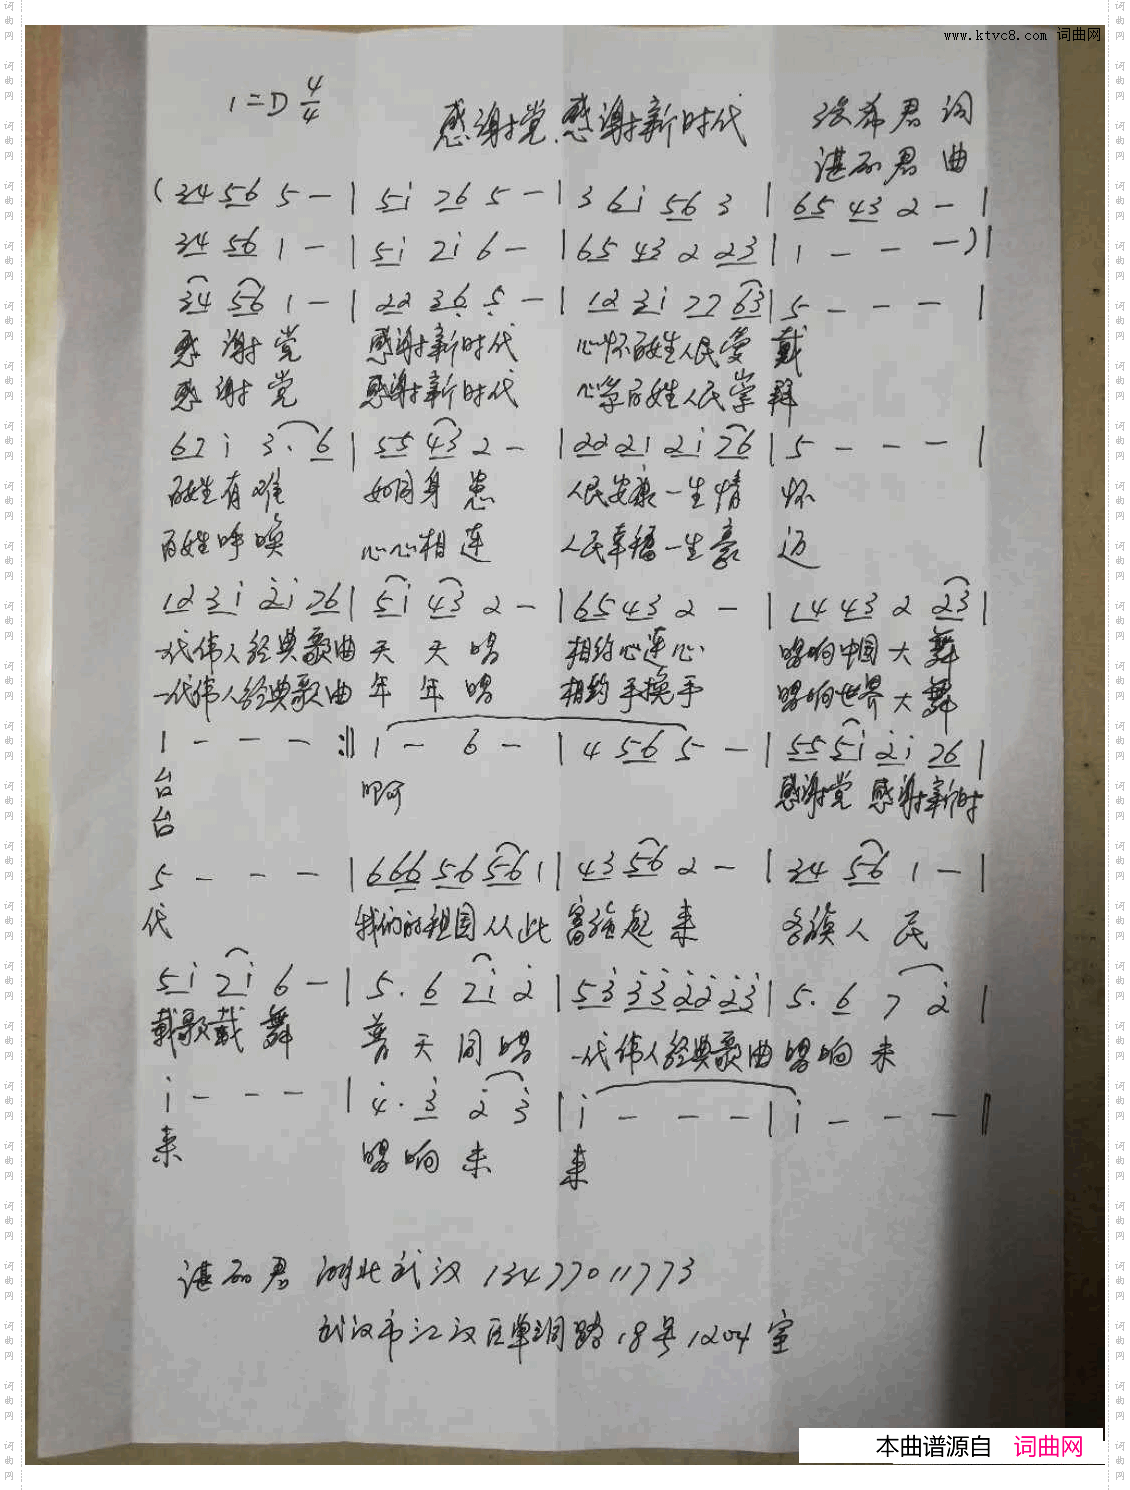 www.ktvc8.com 词曲网
1=D 4/4
感谢党、感谢新时代
张希君 词
谌丽君 曲
(34 56 5 - | 5i 26 5 - | 3 6i 56 3 | 65 43 2 - |
34 56 1 - | 5i 2i 6 - | 65 43 2 23 | 1 - - -) |
34 56 1 - | 22 36 5 - | 12 3i 27 63 | 5 - - - |
感 谢 党 感谢新时代 心怀百姓人民爱 戴
感 谢 党 感谢新时代 心牵百姓人民崇 拜
67 i 3. 6 | 55 43 2 - | 22 21 2i 76 | 5 - - - |
百姓有 难 如同身 患 人民安康一生情 怀
百姓呼 唤 心心相 连 人民幸福一生豪 迈
12 3i 2i 76 | 5i 43 2 - | 65 43 2 - | 14 43 2 23 |
一代伟人经典歌曲 天 天 唱 相约心连心 唱响中国大 舞
一代伟人经典歌曲 年 年 唱 相约手换手 唱响世界大 舞
1 - - - :|| 1 - 6 - | 4 56 5 - | 55 5i 2i 76 |
台 啊 感谢党 感谢新时
台
5 - - - | 666 56 56 1 | 43 56 2 - | 34 56 1 - |
代 我们的祖国从此 富强起 来 各族人 民
5i 2i 6 - | 5. 6 7i 2 | 53 33 22 23 | 5. 6 7 2 |
载歌载 舞 普 天 同 唱 一代伟人经典歌曲 唱响 未
i - - - | 4. 3 2 3 | i - - - | i - - - ||
来 唱 响 未 来
谌丽君 湖北武汉 13477011773
武汉市江汉区单洞路18号1204室
本曲谱源自 词曲网